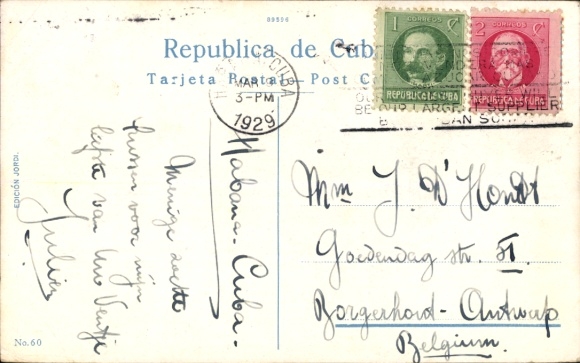 99586
Republica de Cuba
Tarjeta Postal - Post C
1 CORREOS ¢
REPUBLICA DE CUBA
2 CORREOS ¢
REPUBLICA DE CUBA
MAR 9
3-PM
1929
WILL
LARGER SUPPLIER
Habana-Cuba-
Menige zachte
kussen voor mijn
liefste van uw Ventje
Julien
Mme J. D'Hondt
Goedendag str. 51.
Borgerhout-Antwerp
Belgium.
EDICIÓN JORDI.
No. 60